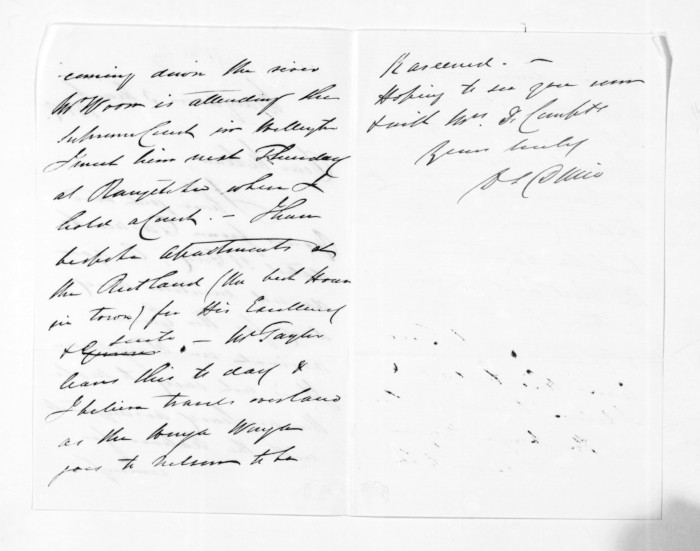 coming down the river
Mr Woon is attending the
Supreme Court in Wellington
I meet him next Thursday
at Rangitikei where I
hold a Court. — I have
bespoke apartments at
the Rutland (the best House
in town) for His Excellency
& suite . — Mr Taylor
leaves this to day &
I believe travels overland
as the Wonga Wonga
goes to Nelson to be
Rescrewed. —
Hoping to see you soon
& with Mrs
Yours truly